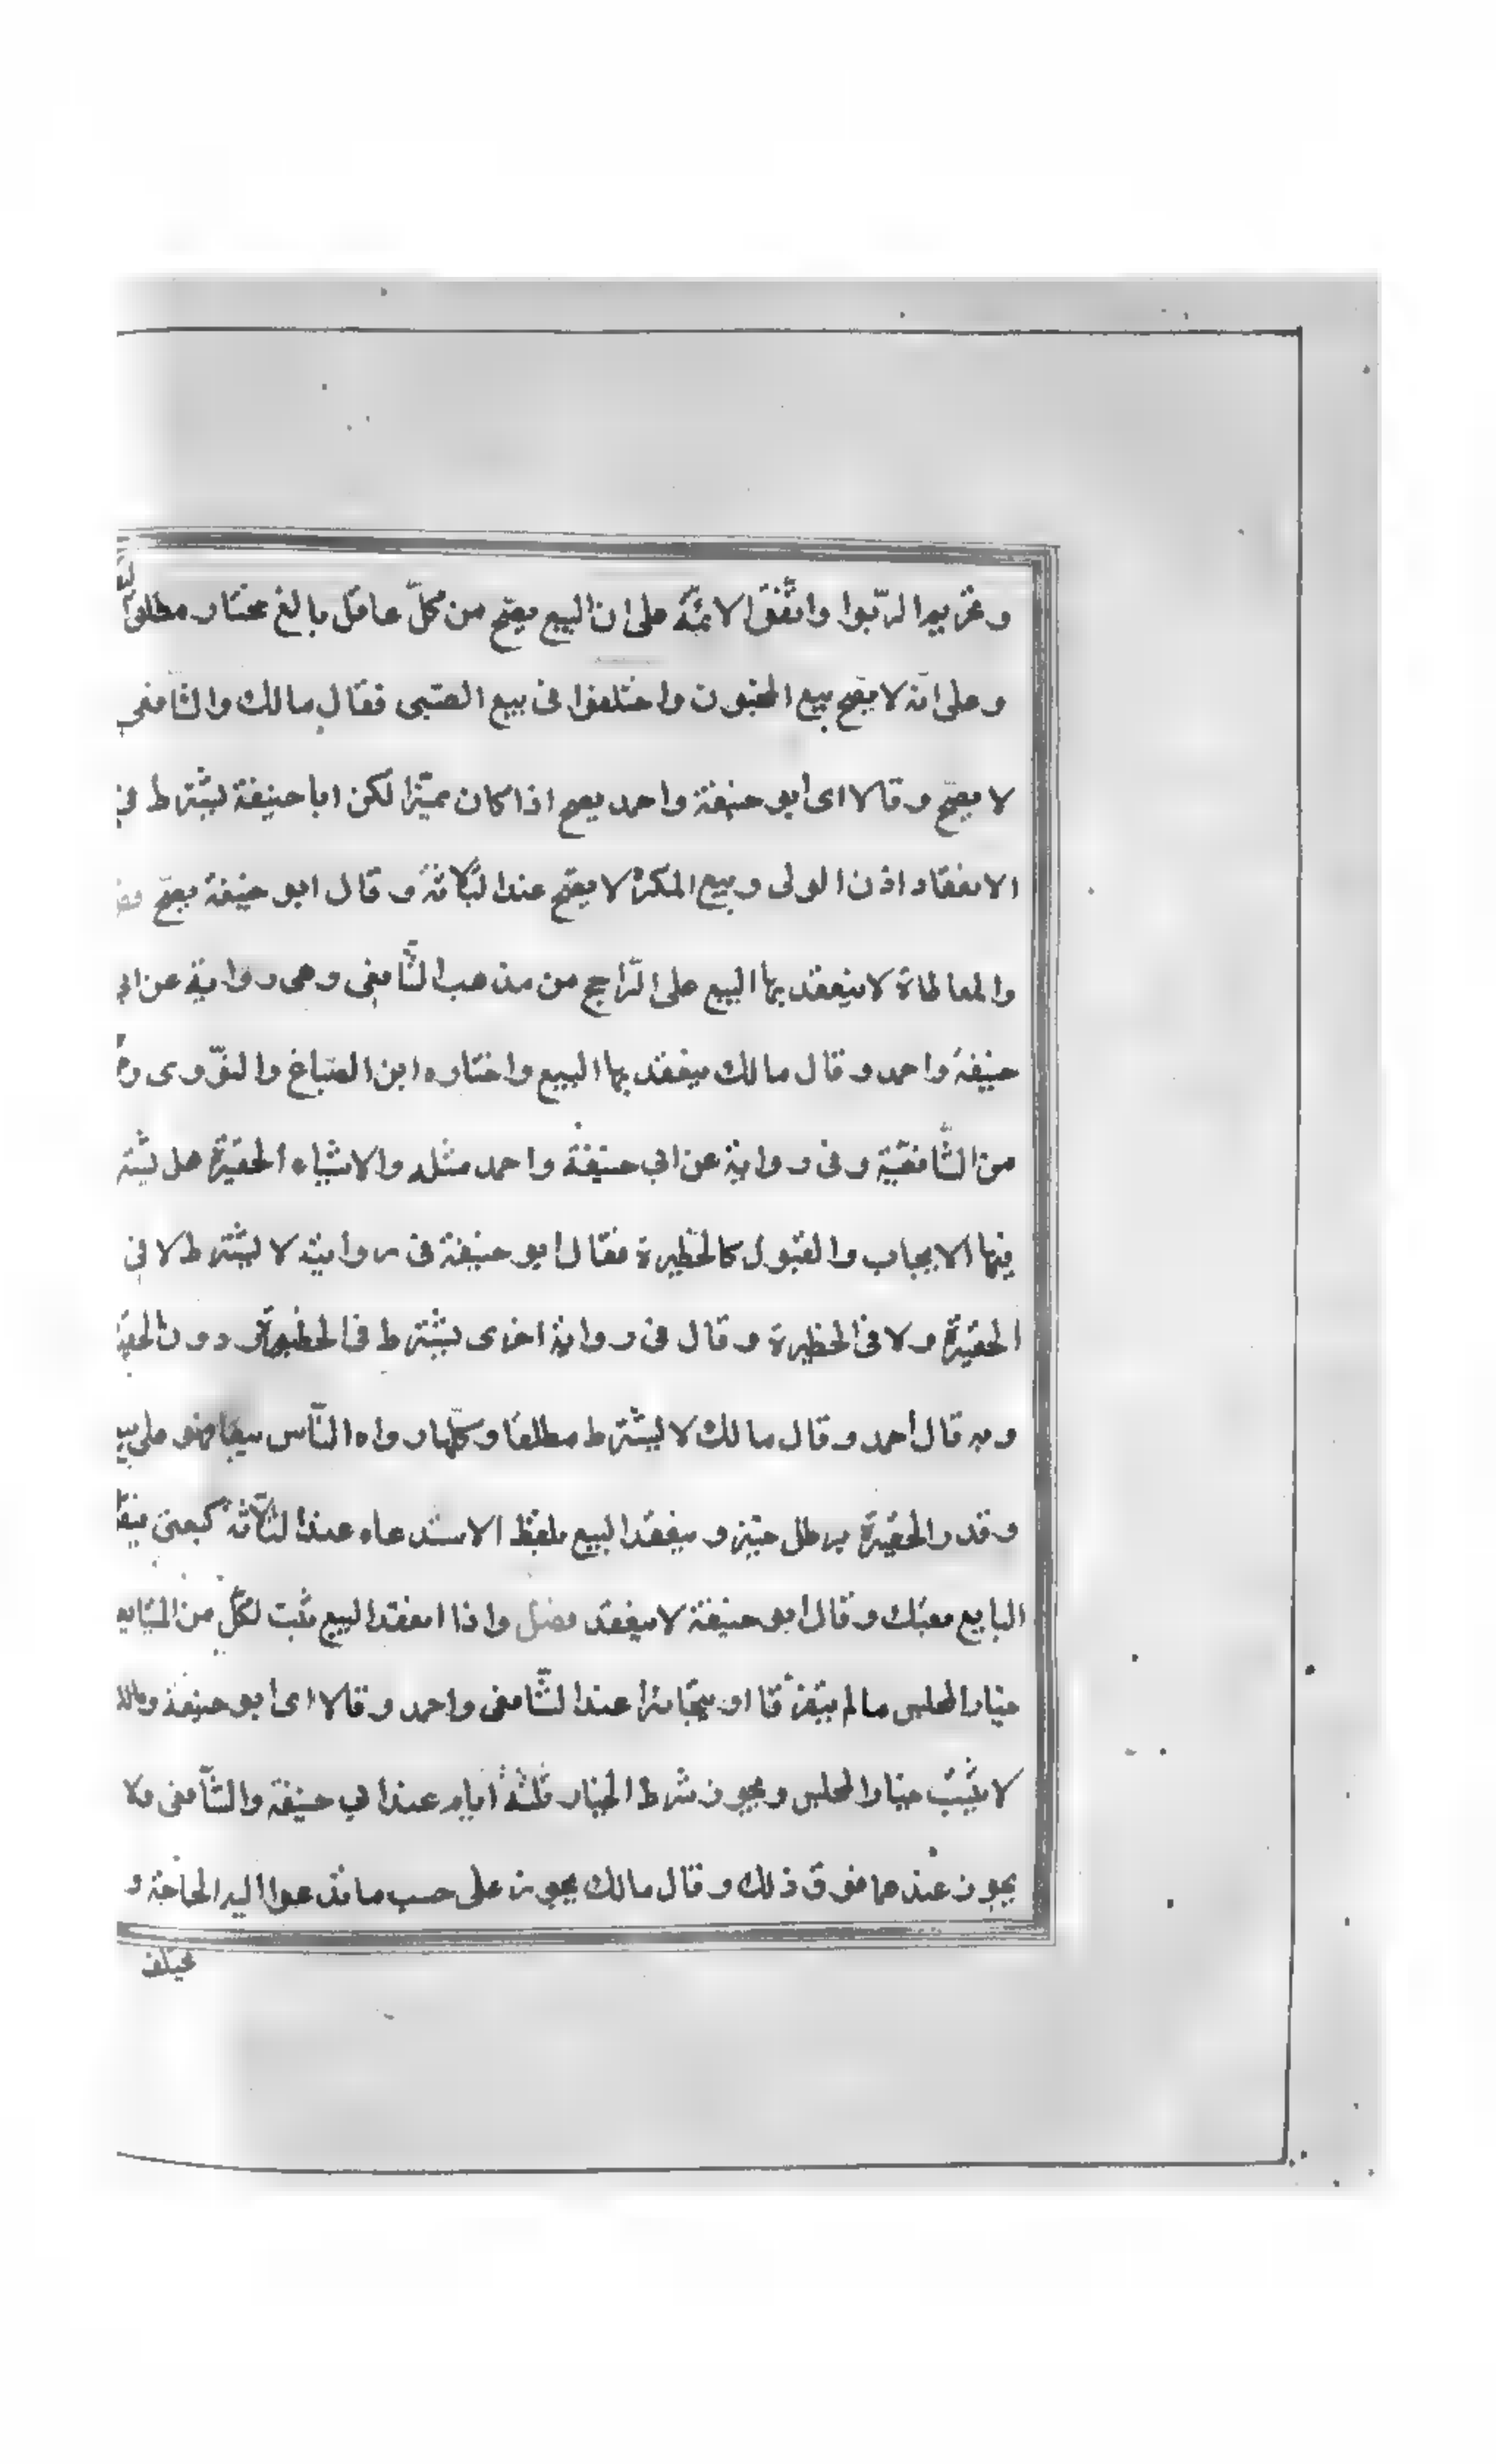 وتحريم الربوا واتفق الائمّة على ان البيع يصحّ من كلّ عاقل بالغ مختار مطلق
وعلى انّه لا يصح بيع المجنون واختلفوا فى بيع الصّبى فقال مالك والشّافعى
لا يصحّ وقالا اى ابو حنيفة واحمد يصح اذا كان مميّزا لكن ابا حنيفة يشترط فى
الانعقاد اذن الولى وبيع المكره لا يصحّ عند الثّلاثة وقال ابو حنيفة يصحّ
والمعاطاة لا ينعقد بها البيع على الرّاجح من مذهب الشّافعى وهى رواية عن ابى
حنيفة واحمد وقال مالك ينعقد بها البيع واختاره ابن الصّباغ والنّووى
من الشّافعيّة وفى رواية عن ابي حنيفة واحمد مثله والاشياء الحقيرة هل
فيها الايجاب والقبول كالخطيرة فقال ابو حنيفة فى رواية لا يشترط لا فى
الحقيرة ولا فى الخطيرة وقال فى رواية اخرى يشترط فى الخطيرة دون
وبه قال احمد وقال مالك لا يشترط مطلقا وكلّما رواه النّاس بيعا فهو
وقدر الحقيرة برطل خبز وينعقد البيع بلفظ الاستدعاء عند الثّلاثة كبعنى
البايع بعتك وقال ابو حنيفة لا ينعقد فصل واذا انعقد البيع ثبت لكلّ من
خيار المجلس ما لم يتفرّقا او يتخايرا عند الشّافعى واحمد وقالا اى ابو حنيفة ومالك
لا يثبت خيار المجلس ويجوز شرط الخيار ثلثة ايام عند ابي حنيفة والشّافعى ولا
يجوز عندهما فوق ذلك وقال مالك يجوز على حسب ما تدعوا اليه الحاجة و